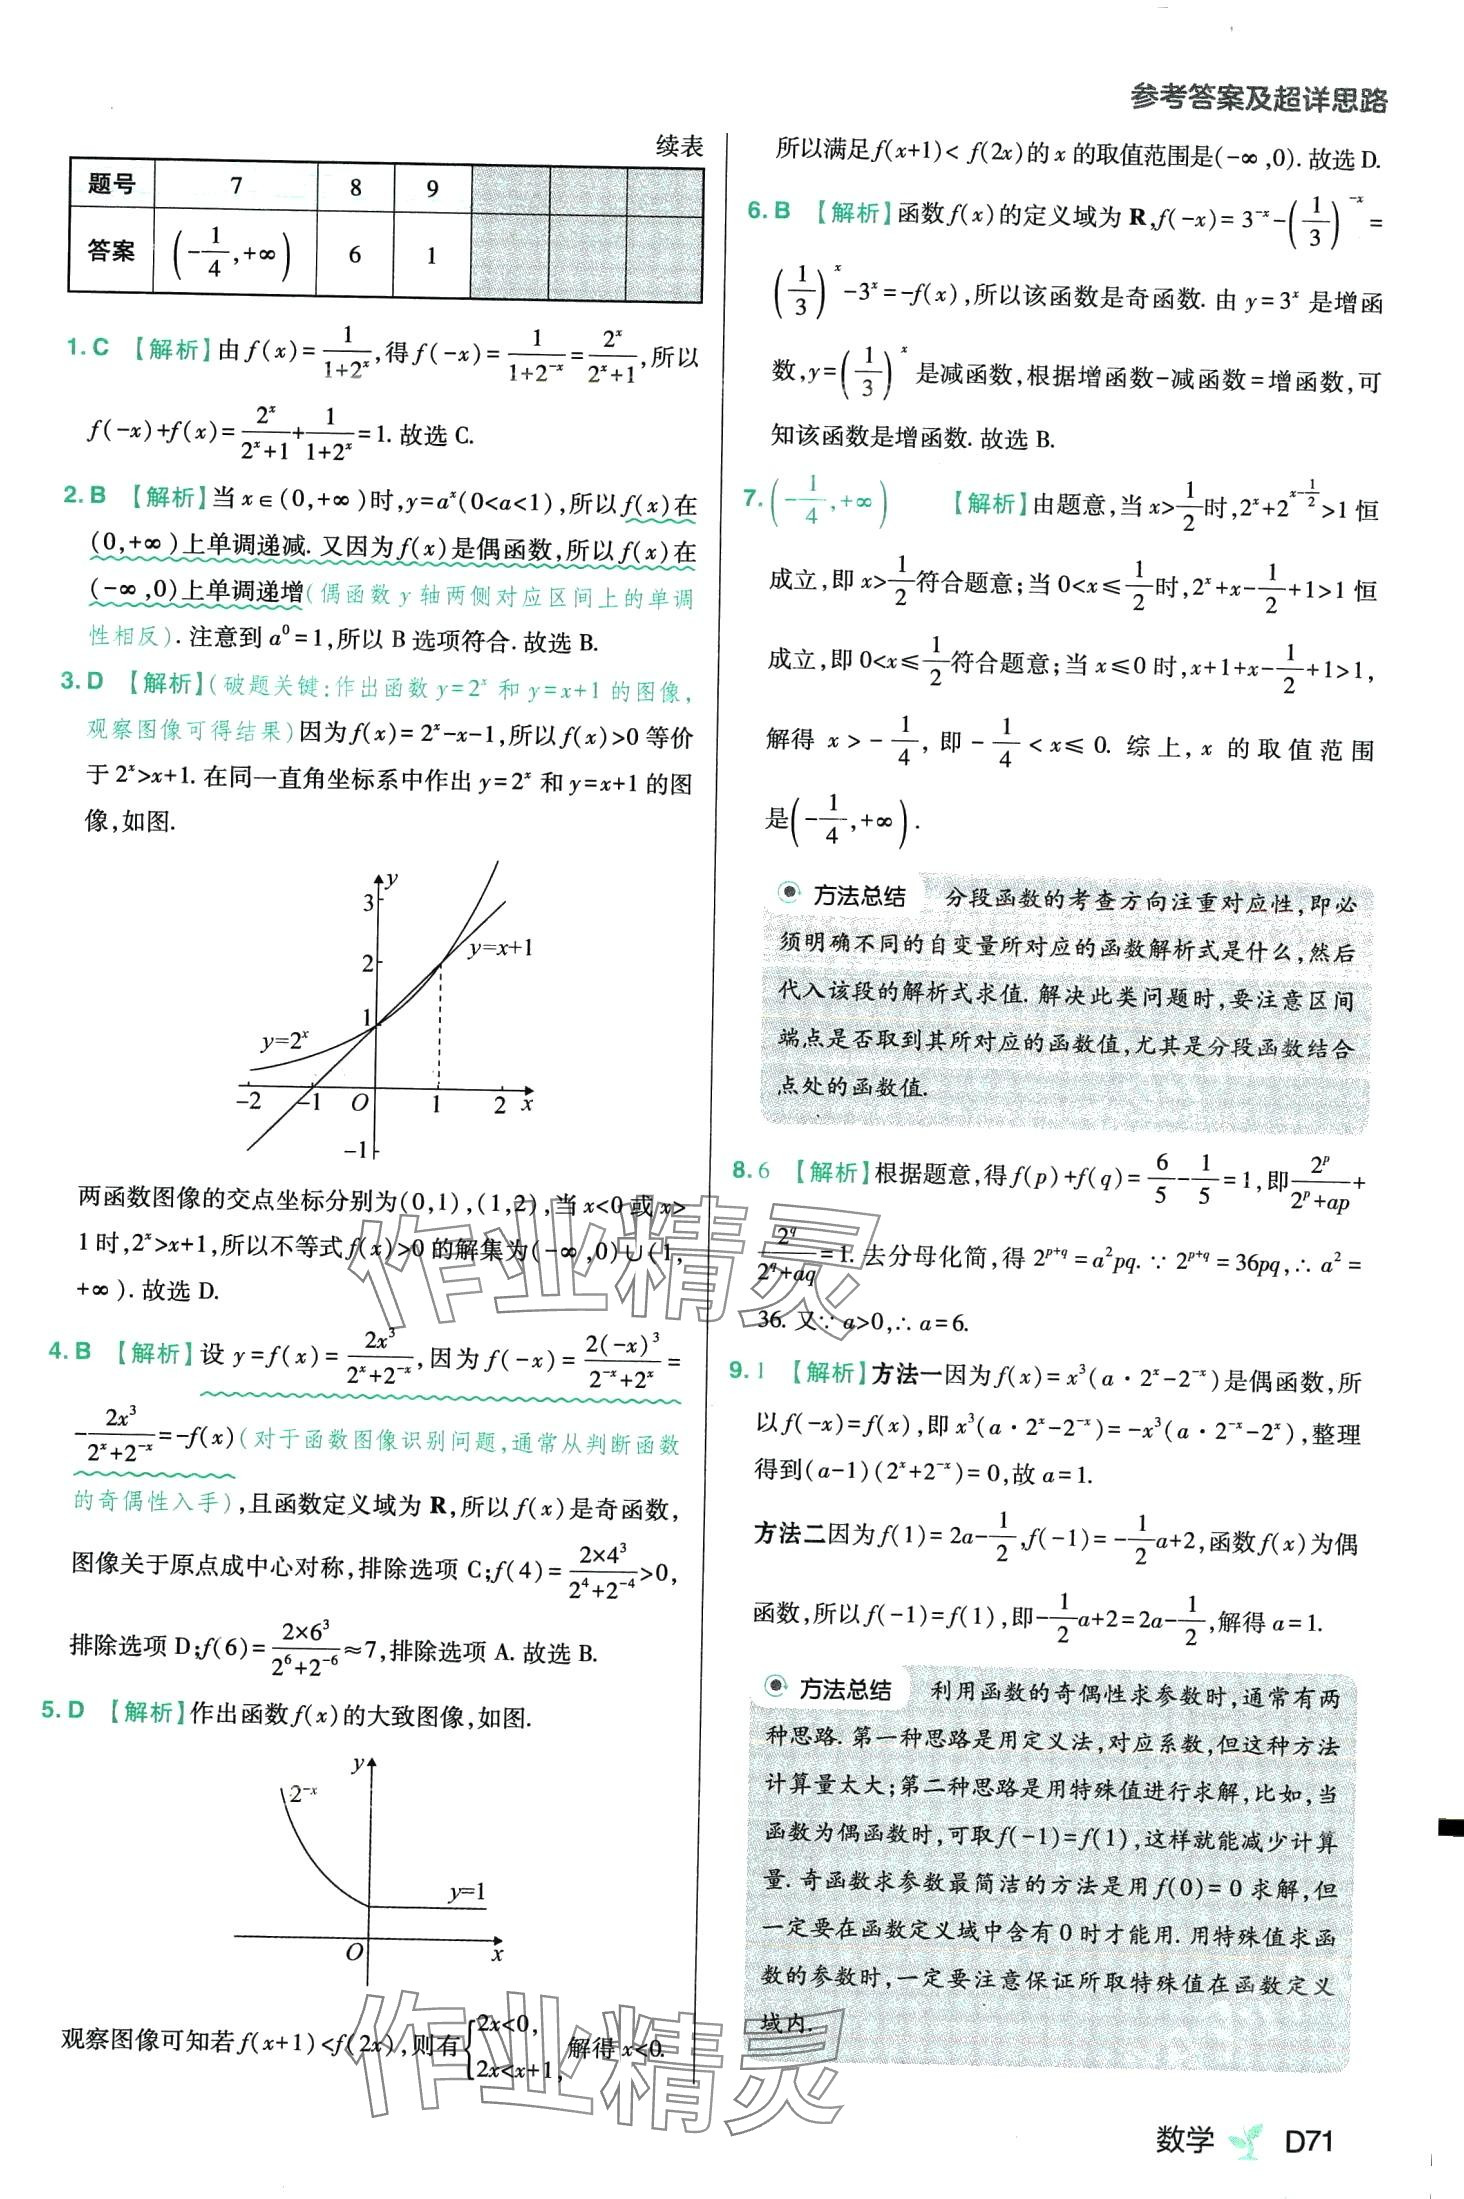 参考答案及超详思路
续表
题号 7 8 9
答案 (-1/4,+∞) 6 1
1. C 【解析】由 f(x)=1/(1+2ˣ),得 f(-x)=1/(1+2⁻ˣ)=2ˣ/(2ˣ+1),所以
f(-x)+f(x)=2ˣ/(2ˣ+1)+1/(1+2ˣ)=1. 故选 C.
2. B 【解析】当 x∈(0,+∞)时,y=aˣ(0<a<1),所以 f(x)在
(0,+∞)上单调递减. 又因为 f(x)是偶函数,所以 f(x)在
(-∞,0)上单调递增(偶函数 y 轴两侧对应区间上的单调
性相反). 注意到 a⁰=1,所以 B 选项符合. 故选 B.
3. D 【解析】(破题关键:作出函数 y=2ˣ 和 y=x+1 的图像,
观察图像可得结果)因为 f(x)=2ˣ-x-1,所以 f(x)>0 等价
于 2ˣ>x+1. 在同一直角坐标系中作出 y=2ˣ 和 y=x+1 的图
像,如图.
y
3
y=x+1
2
1
y=2ˣ
-2 -1 O 1 2 x
-1
两函数图像的交点坐标分别为(0,1),(1,2),当 x<0 或 x>
1 时,2ˣ>x+1,所以不等式 f(x)>0 的解集为(-∞,0)∪(1,
+∞). 故选 D.
4. B 【解析】设 y=f(x)=2x³/(2ˣ+2⁻ˣ),因为 f(-x)=2(-x)³/(2⁻ˣ+2ˣ)=
-2x³/(2ˣ+2⁻ˣ)=-f(x)(对于函数图像识别问题,通常从判断函数
的奇偶性入手),且函数定义域为 R,所以 f(x)是奇函数,
图像关于原点成中心对称,排除选项 C;f(4)=2×4³/(2⁴+2⁻⁴)>0,
排除选项 D;f(6)=2×6³/(2⁶+2⁻⁶)≈7,排除选项 A. 故选 B.
5. D 【解析】作出函数 f(x)的大致图像,如图.
y
2⁻ˣ
y=1
O x
观察图像可知若 f(x+1)<f(2x),则有{2x<0, 2x<x+1, 解得 x<0.
所以满足 f(x+1)<f(2x)的 x 的取值范围是(-∞,0). 故选 D.
6. B 【解析】函数 f(x)的定义域为 R,f(-x)=3⁻ˣ-(1/3)⁻ˣ=
(1/3)ˣ-3ˣ=-f(x),所以该函数是奇函数. 由 y=3ˣ 是增函
数,y=(1/3)ˣ 是减函数,根据增函数-减函数=增函数,可
知该函数是增函数. 故选 B.
7. (-1/4,+∞) 【解析】由题意,当 x>1/2时,2ˣ+2^(x-1/2)>1 恒
成立,即 x>1/2符合题意;当 0<x≤1/2时,2ˣ+x-1/2+1>1 恒
成立,即 0<x≤1/2符合题意;当 x≤0 时,x+1+x-1/2+1>1,
解得 x>-1/4, 即 -1/4<x≤0. 综上,x 的取值范围
是(-1/4,+∞).
方法总结 分段函数的考查方向注重对应性,即必
须明确不同的自变量所对应的函数解析式是什么,然后
代入该段的解析式求值. 解决此类问题时,要注意区间
端点是否取到其所对应的函数值,尤其是分段函数结合
点处的函数值.
8. 6 【解析】根据题意,得 f(p)+f(q)=6/5-1/5=1,即2ᵖ/(2ᵖ+ap)+
2^q/(2^q+aq)=1. 去分母化简,得 2^(p+q)=a²pq. ∵2^(p+q)=36pq,∴a²=
36. 又∵a>0,∴a=6.
9. 1 【解析】方法一因为 f(x)=x³(a·2ˣ-2⁻ˣ)是偶函数,所
以 f(-x)=f(x),即 x³(a·2ˣ-2⁻ˣ)=-x³(a·2⁻ˣ-2ˣ),整理
得到(a-1)(2ˣ+2⁻ˣ)=0,故 a=1.
方法二因为 f(1)=2a-1/2,f(-1)=-1/2a+2,函数 f(x)为偶
函数,所以 f(-1)=f(1),即-1/2a+2=2a-1/2,解得 a=1.
方法总结 利用函数的奇偶性求参数时,通常有两
种思路. 第一种思路是用定义法,对应系数,但这种方法
计算量太大;第二种思路是用特殊值进行求解,比如,当
函数为偶函数时,可取 f(-1)=f(1),这样就能减少计算
量. 奇函数求参数最简洁的方法是用 f(0)=0 求解,但
一定要在函数定义域中含有 0 时才能用. 用特殊值求函
数的参数时,一定要注意保证所取特殊值在函数定义
域内.
作业精灵
作业精灵
数学 D71